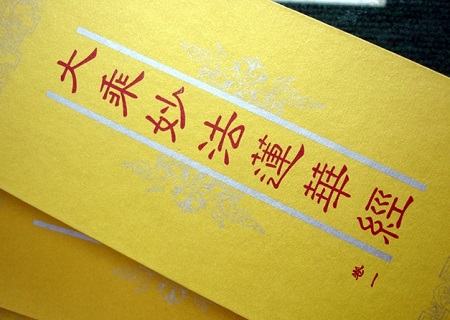 大乘妙法蓮華經
卷一